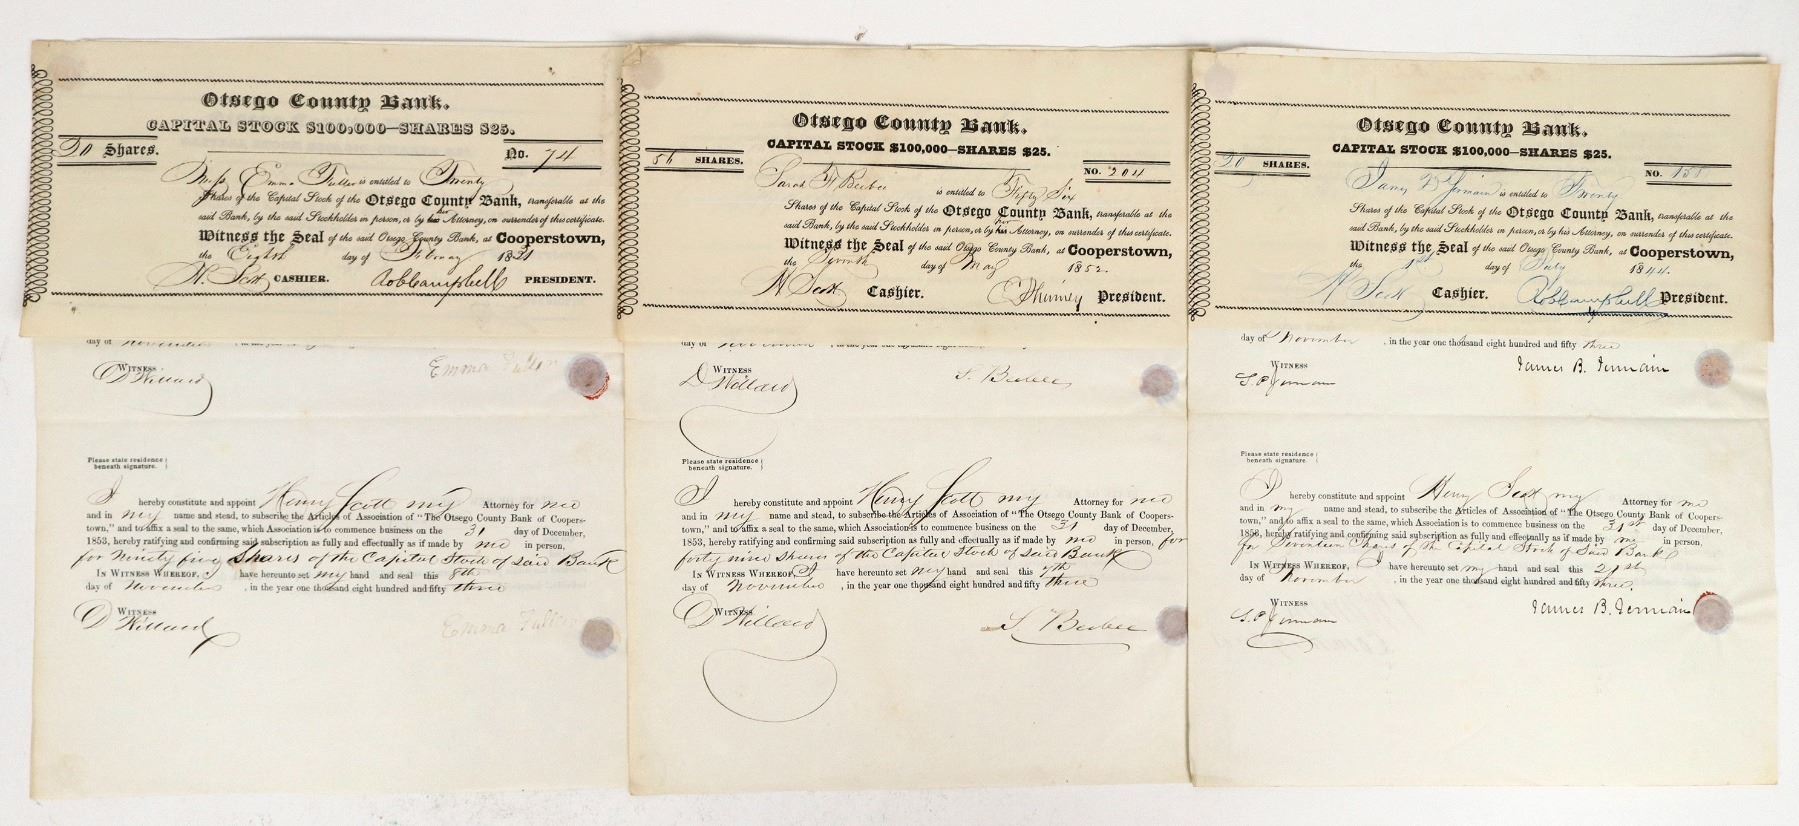 Otsego County Bank.
CAPITAL STOCK $100,000—SHARES $25.
20 Shares.
No. 74
Miss Emma Fuller is entitled to Twenty
Shares of the Capital Stock of the Otsego County Bank, transferable at the
said Bank, by the said Stockholder in person, or by his her Attorney, on surrender of this certificate.
Witness the Seal of the said Otsego County Bank, at Cooperstown,
the Eighth day of February 18
H. Scott CASHIER. Rob Campbell PRESIDENT.
day of November
WITNESS
D Willard
Emma Fuller
Please state residence
beneath signature.
I hereby constitute and appoint Henry Scott my Attorney for me
and in my name and stead, to subscribe the Articles of Association of "The Otsego County Bank of Coopers-
town," and to affix a seal to the same, which Association is to commence business on the 31 day of December,
1853, hereby ratifying and confirming said subscription as fully and effectually as if made by me in person,
for Ninety five Shares of the Capital Stock of said Bank
IN WITNESS WHEREOF, I have hereunto set my hand and seal this 8th
day of November, in the year one thousand eight hundred and fifty three
WITNESS
D Willard
Emma Fuller
Otsego County Bank.
CAPITAL STOCK $100,000—SHARES $25.
56 SHARES.
NO. 204
Sarah F. Beebee is entitled to Fifty Six
Shares of the Capital Stock of the Otsego County Bank, transferable at the
said Bank, by the said Stockholder in person, or by his her Attorney, on surrender of this certificate.
Witness the Seal of the said Otsego County Bank, at Cooperstown,
the Seventh day of May 1852.
H Scott Cashier. President.
day of November
WITNESS
D Willard
S. Beebee
Please state residence
beneath signature.
I hereby constitute and appoint Henry Scott my Attorney for me
and in my name and stead, to subscribe the Articles of Association of "The Otsego County Bank of Coopers-
town," and to affix a seal to the same, which Association is to commence business on the 31 day of December,
1853, hereby ratifying and confirming said subscription as fully and effectually as if made by me in person, for
forty nine shares of the Capital Stock of said Bank
IN WITNESS WHEREOF, I have hereunto set my hand and seal this 7th
day of November, in the year one thousand eight hundred and fifty three
WITNESS
D Willard
S Beebee
Otsego County Bank.
CAPITAL STOCK $100,000—SHARES $25.
20 SHARES.
NO. 158
James B Jermain is entitled to Twenty
Shares of the Capital Stock of the Otsego County Bank, transferable at the
said Bank, by the said Stockholder in person, or by his Attorney, on surrender of this certificate.
Witness the Seal of the said Otsego County Bank, at Cooperstown,
the 1st day of July 1844.
H Scott Cashier. Rob Campbell President.
day of November, in the year one thousand eight hundred and fifty three
WITNESS
S. P. Jermain
James B. Jermain
Please state residence
beneath signature.
I hereby constitute and appoint Henry Scott my Attorney for me
and in my name and stead, to subscribe the Articles of Association of "The Otsego County Bank of Coopers-
town," and to affix a seal to the same, which Association is to commence business on the 31st day of December,
1853, hereby ratifying and confirming said subscription as fully and effectually as if made by me in person,
for Seventeen Shares of the Capital Stock of Said Bank
IN WITNESS WHEREOF, I have hereunto set my hand and seal this 21st
day of November, in the year one thousand eight hundred and fifty three
WITNESS
S. P. Jermain
James B. Jermain